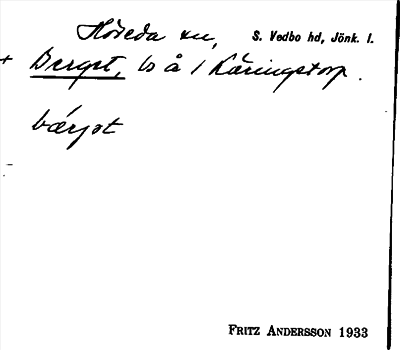 Höreda sn, S. Vedbo hd, Jönk. l.
+ Berget, ls å / Käringstorp.
bærjət
FRITZ ANDERSSON 1933